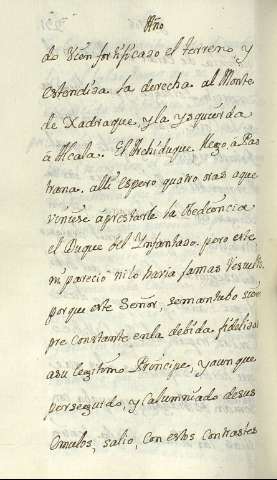 Año
do vien fortificaso el terreno, y
estendisa la derecha al Monte
de Xadraque, y la ysquierda
á Alcala. El Archiduque llego, a Pas
trana. alli espero quatro oras aque
viniese áprestarle la Obedeoncia
el Duque del Ynfantaso. pero este
ni pareció ni lo havia jamas resuelto,
porque este Señor, semantubo siem
pre Constante enla devida fidelidad
asu legitimo Príncipe, y aunque
perseguido, y Calumniado desus
Emulos, salio, Con estos Contrastes